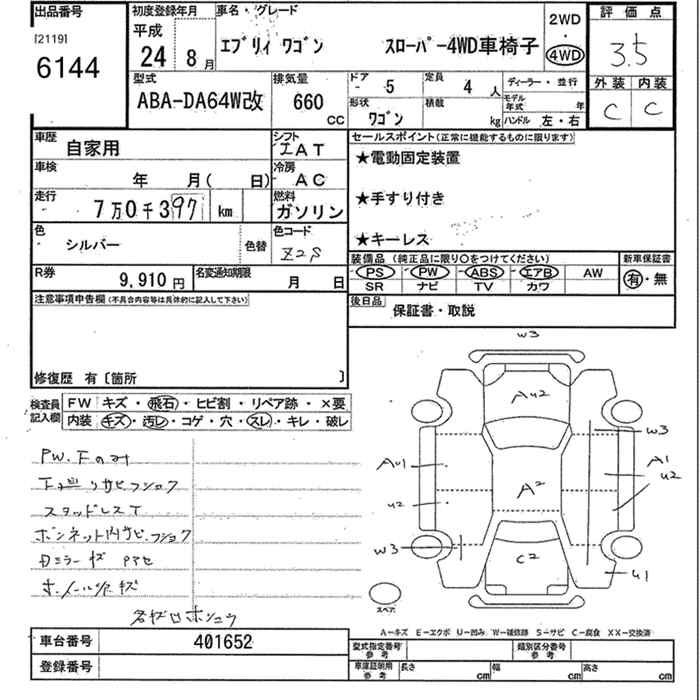 出品番号
[2119]
6144
初度登録年月
平成
24 8月
車名・グレード
エブリィ ワゴン スローパー4WD車椅子
2WD
・
4WD
評価点
3.5
型式
ABA-DA64W改
排気量
660
CC
ドア
- 5
定員
4 人
形状
ワゴン
積載
kg
ディーラー・並行
モデル年式 年
ハンドル 左・右
外装 内装
C C
車歴
自家用
シフト
IAT
車検
年 月( 日)
冷房
AC
走行
7万0千397 km
燃料
ガソリン
色
シルバー
色替
色コード
Z2S
R券
9,910円
名変通知期限
月 日
セールスポイント(正常に機能するものに限ります)
★電動固定装置
★手すり付き
★キーレス
装備品(純正品に限り○をつけてください)
新車保証書
PS PW ABS エアB AW
SR ナビ TV カワ
有・無
後日品
保証書・取説
注意事項申告欄(不具合内容等は具体的に記入して下さい)
修復歴 有〔箇所 〕
検査員記入欄
FW キズ・飛石・ヒビ割・リペア跡・×要
内装 キズ・汚レ・コゲ・穴・スレ・キレ・破レ
PW.Fのみ
下廻りサビフショク
スタッドレスT
ボンネット内サビ.フショク
Dミラーキズ
ホイールキズ
W3
AU2
W3
AU1
A1
U2
U2
A2
W3
C2
U1
スペア
A-キズ E-エクボ U-凹み W-補修跡 S-サビ C-腐食 XX-交換済
車台番号
401652
登録番号
型式指定番号
参考
類別区分番号
参考
車庫証明用
参考
長さ cm
幅 cm
高さ cm